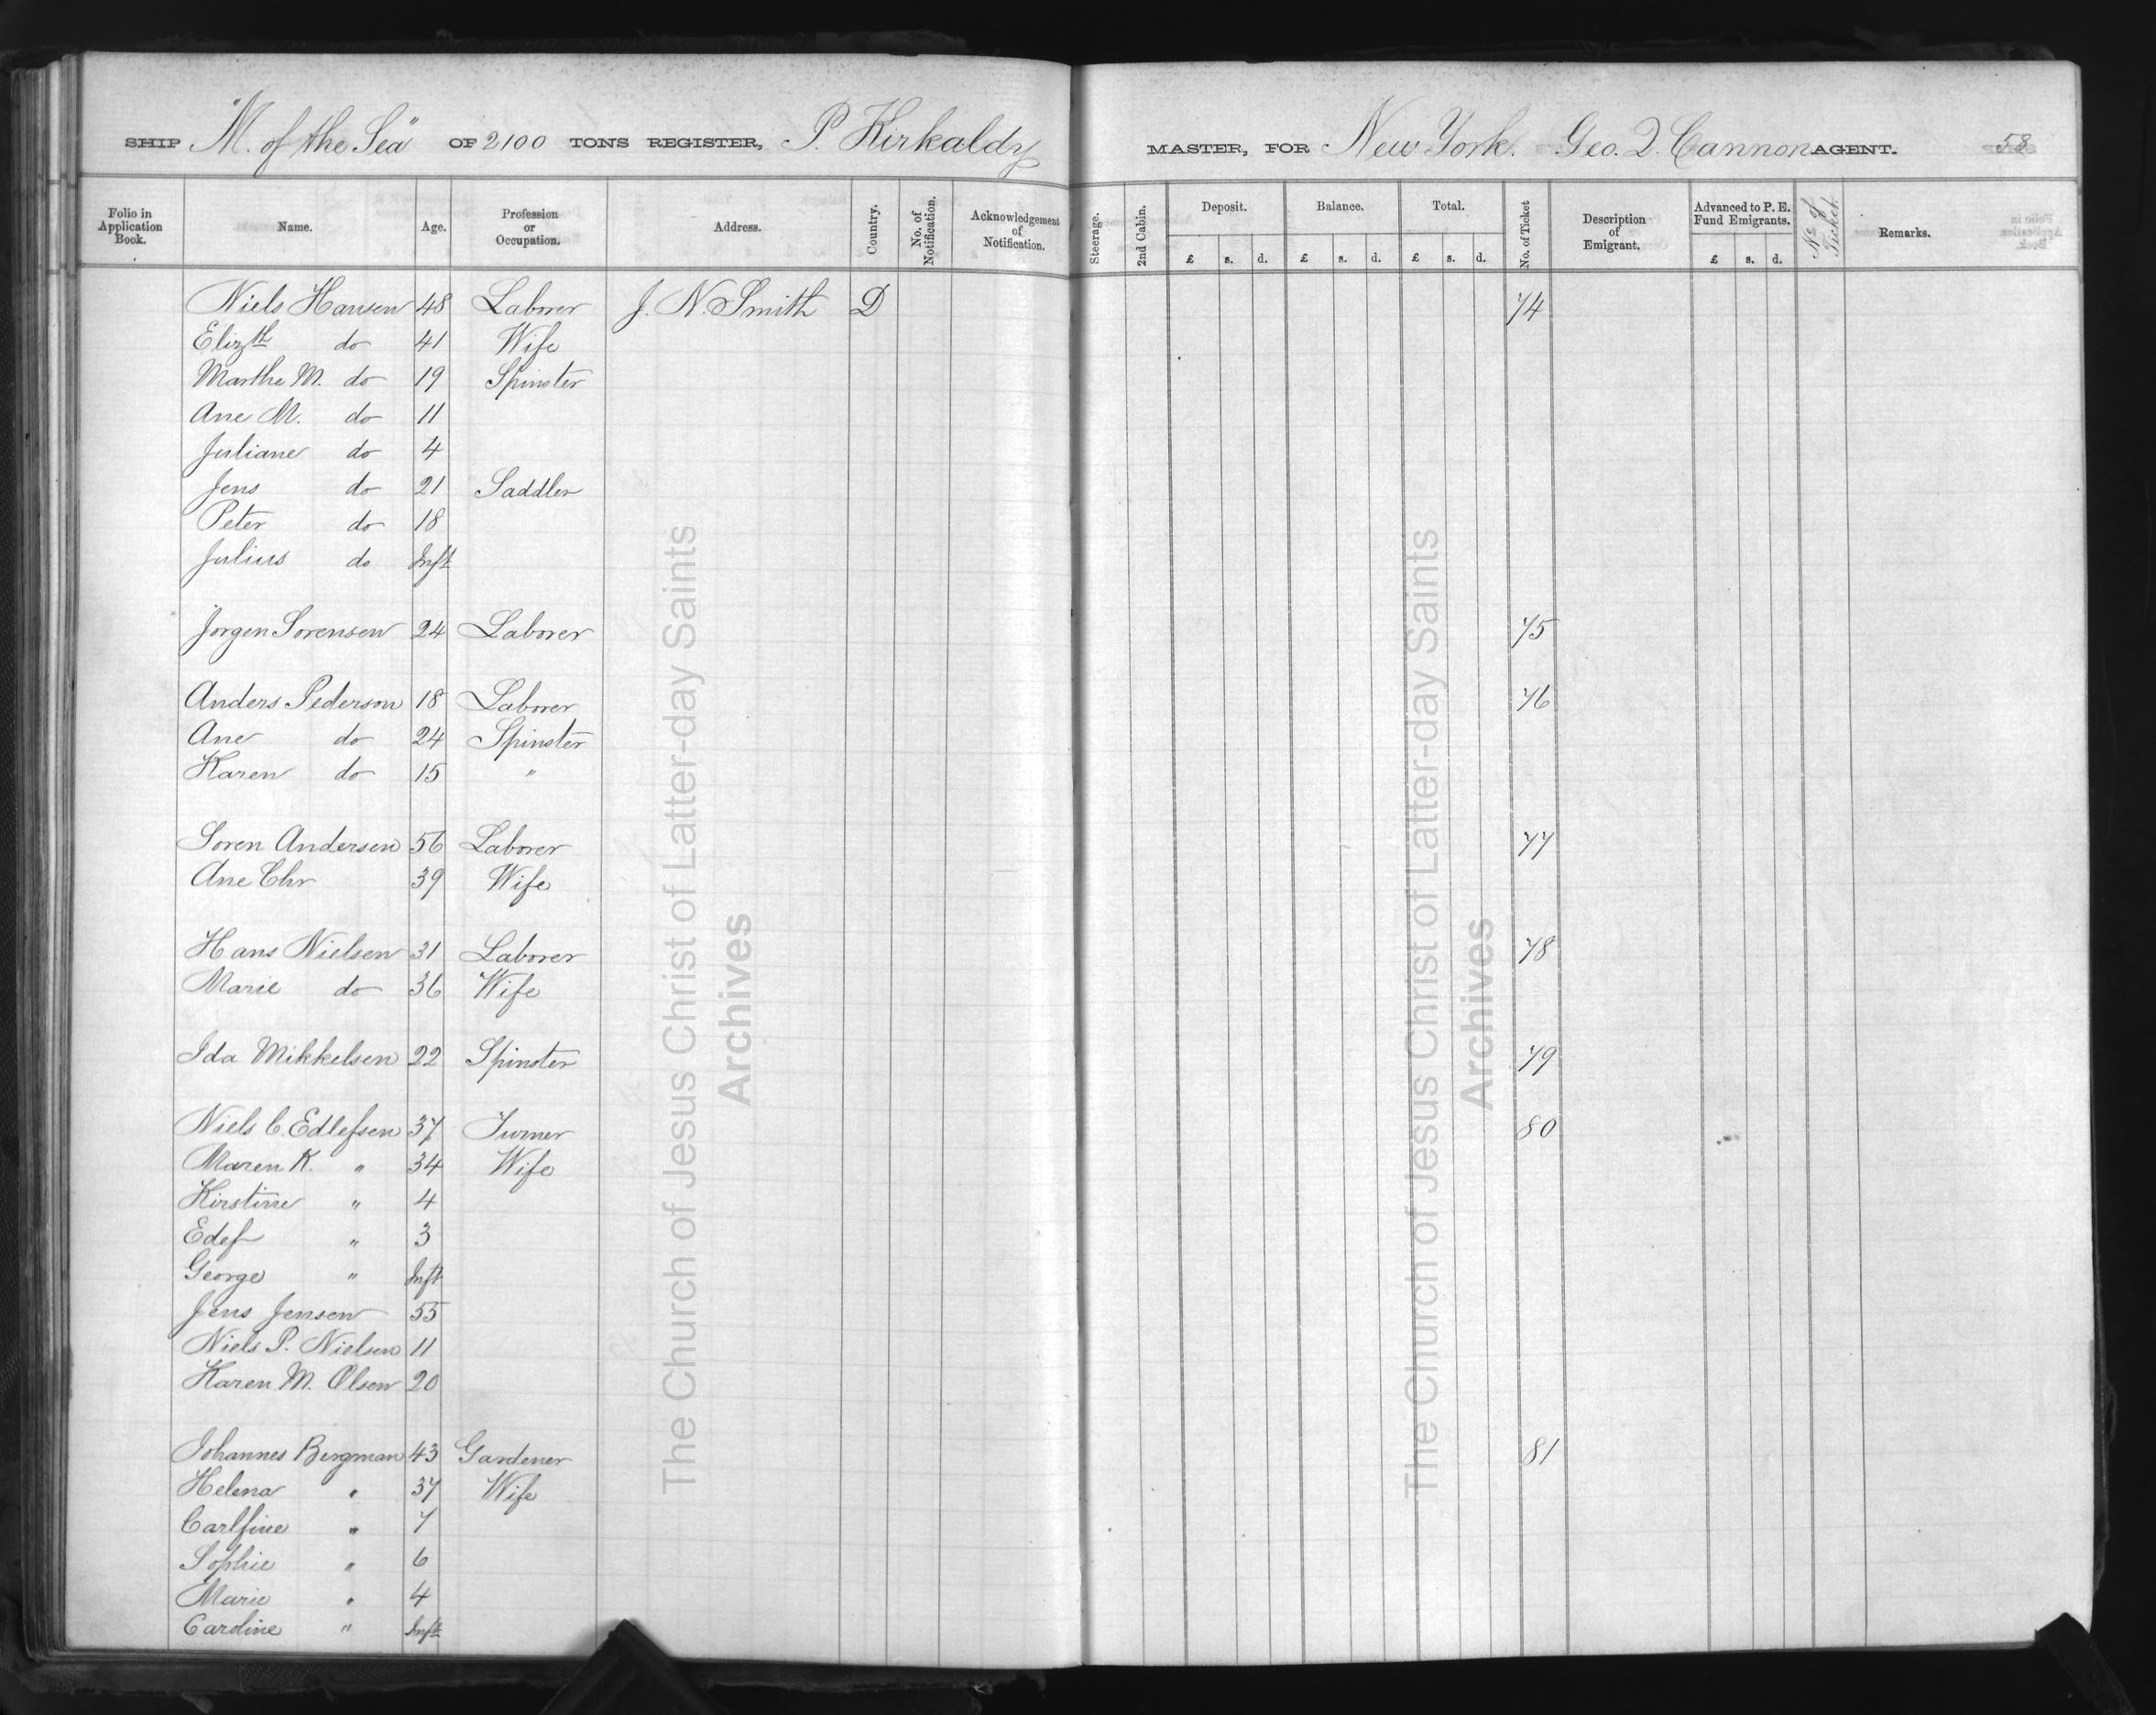 SHIP "M. of the Sea" OF 2100 TONS REGISTER, P. Kirkaldy MASTER, FOR New York. Geo. Q. Cannon AGENT. 58
Folio in Application Book. Name. Age. Profession or Occupation. Address. Country. No. of Notification. Acknowledgement of Notification. Steerage. 2nd Cabin. Deposit. Balance. Total. No. of Ticket Description of Emigrant. Advanced to P. E. Fund Emigrants. No of Ticket. Remarks.
£ s. d. £ s. d. £ s. d. £ s. d.
Niels Hansen 48 Laborer J. N. Smith D 74
Elizth do 41 Wife
Marthe M. do 19 Spinster
Ane M. do 11
Juliane do 4
Jens do 21 Saddler
Peter do 18
Julius do Inft
Jorgen Sorensen 24 Laborer 75
Anders Pederson 18 Laborer 76
Ane do 24 Spinster
Karen do 15 "
Soren Andersen 56 Laborer 77
Ane Chr 39 Wife
Hans Nielsen 31 Laborer 78
Marie do 36 Wife
Ida Mikkelsen 22 Spinster 79
Niels C. Edlefsen 37 Turner 80
Maren K. " 34 Wife
Kirstine " 4
Edef " 3
George " Inft
Jens Jensen 55
Niels P. Nielsen 11
Karen M. Olsen 20
Johannes Bergman 43 Gardener 81
Helena " 37 Wife
Carlfine " 7
Sophie " 6
Marie " 4
Caroline " Inft
The Church of Jesus Christ of Latter-day Saints
Archives
The Church of Jesus Christ of Latter-day Saints
Archives